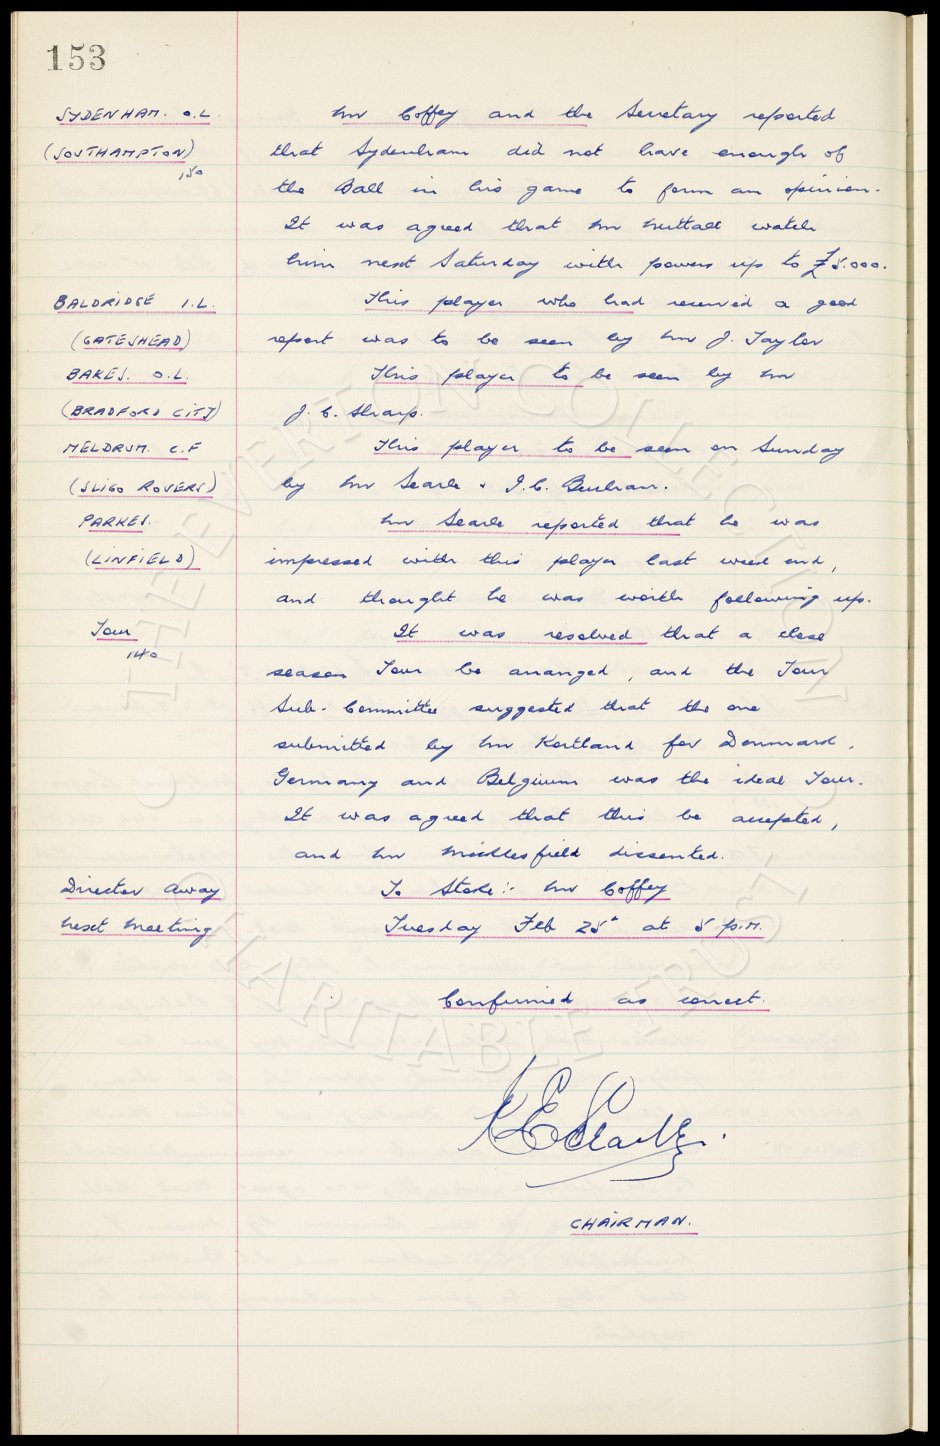 153
SYDENHAM. O.L. Mr Coffey and the Secretary reported
(SOUTHAMPTON) that Sydenham did not have enough of
150
the Ball in his game to form an opinion.
It was agreed that Mr Nuttall watch
him next Saturday with powers up to £5.000.
BALDRIDGE I.L. This player who had received a good
(GATESHEAD) report was to be seen by Mr J. Taylor
BAKES. O.L. This player to be seen by Mr
(BRADFORD CITY) J. C. Sharp.
MELDRUM. C.F This player to be seen on Sunday
(SLIGO ROVERS) by Mr Searle & I. C. Buchan.
PARKES. Mr Searle reported that he was
(LINFIELD) impressed with this player last week end,
and thought he was worth following up.
Tour It was resolved that a close
140
season Tour be arranged, and the Tour
Sub-Committee suggested that the one
submitted by Mr Kortland for Denmark,
Germany and Belgium was the ideal Tour.
It was agreed that this be accepted,
and Mr Micklesfield dissented.
Director Away To Stoke:- Mr Coffey
Next Meeting Tuesday Feb 25" at 5 p.m.
Confirmed as correct.
CHAIRMAN.
© THE EVERTON COLLECTION CHARITABLE TRUST